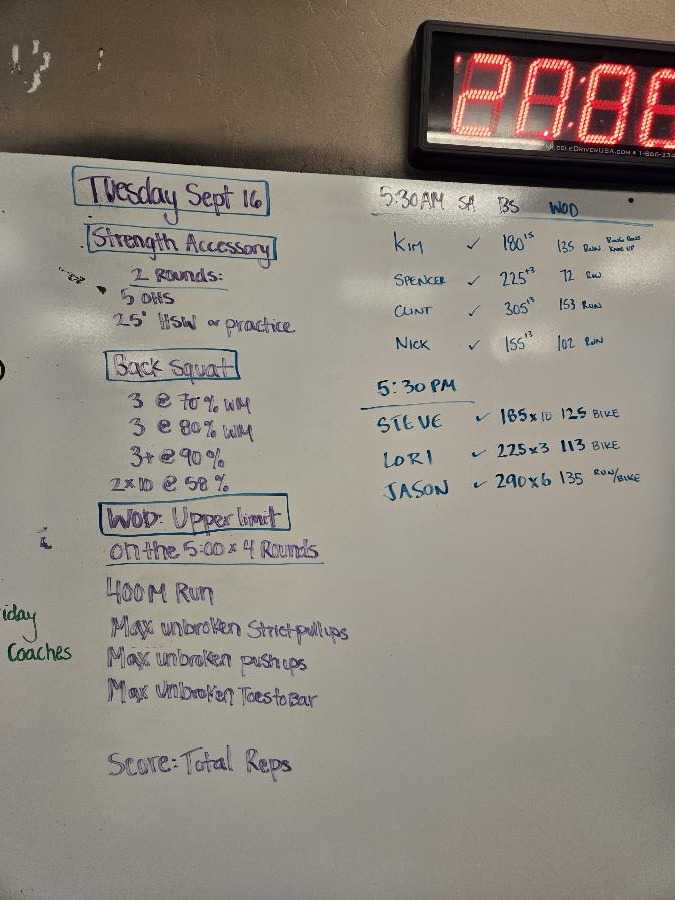 Tuesday Sept 16
Strength Accessory
2 Rounds:
5 OHS
25' HSW or practice
Back Squat
3 @ 70% WM
3 @ 80% WM
3+ @ 90%
2x10 @ 58%
WOD: Upper limit
on the 5:00 x 4 Rounds
400M Run
Max unbroken Strict pull ups
Max unbroken push ups
Max Unbroken Toes to Bar
Score: Total Reps
5:30AM SA BS WOD
KIM ✓ 180 x5 135 RUN
SPENCER ✓ 225 x3 72 Row
CLINT ✓ 305 x3 153 RUN
NICK ✓ 155 x3 102 RUN
5:30 PM
STEVE ✓ 185x10 125 BIKE
LORI ✓ 225x3 113 BIKE
JASON ✓ 290x6 135 RUN/BIKE
iday
Coaches
MuscleDriverUSA.com • 1-866-